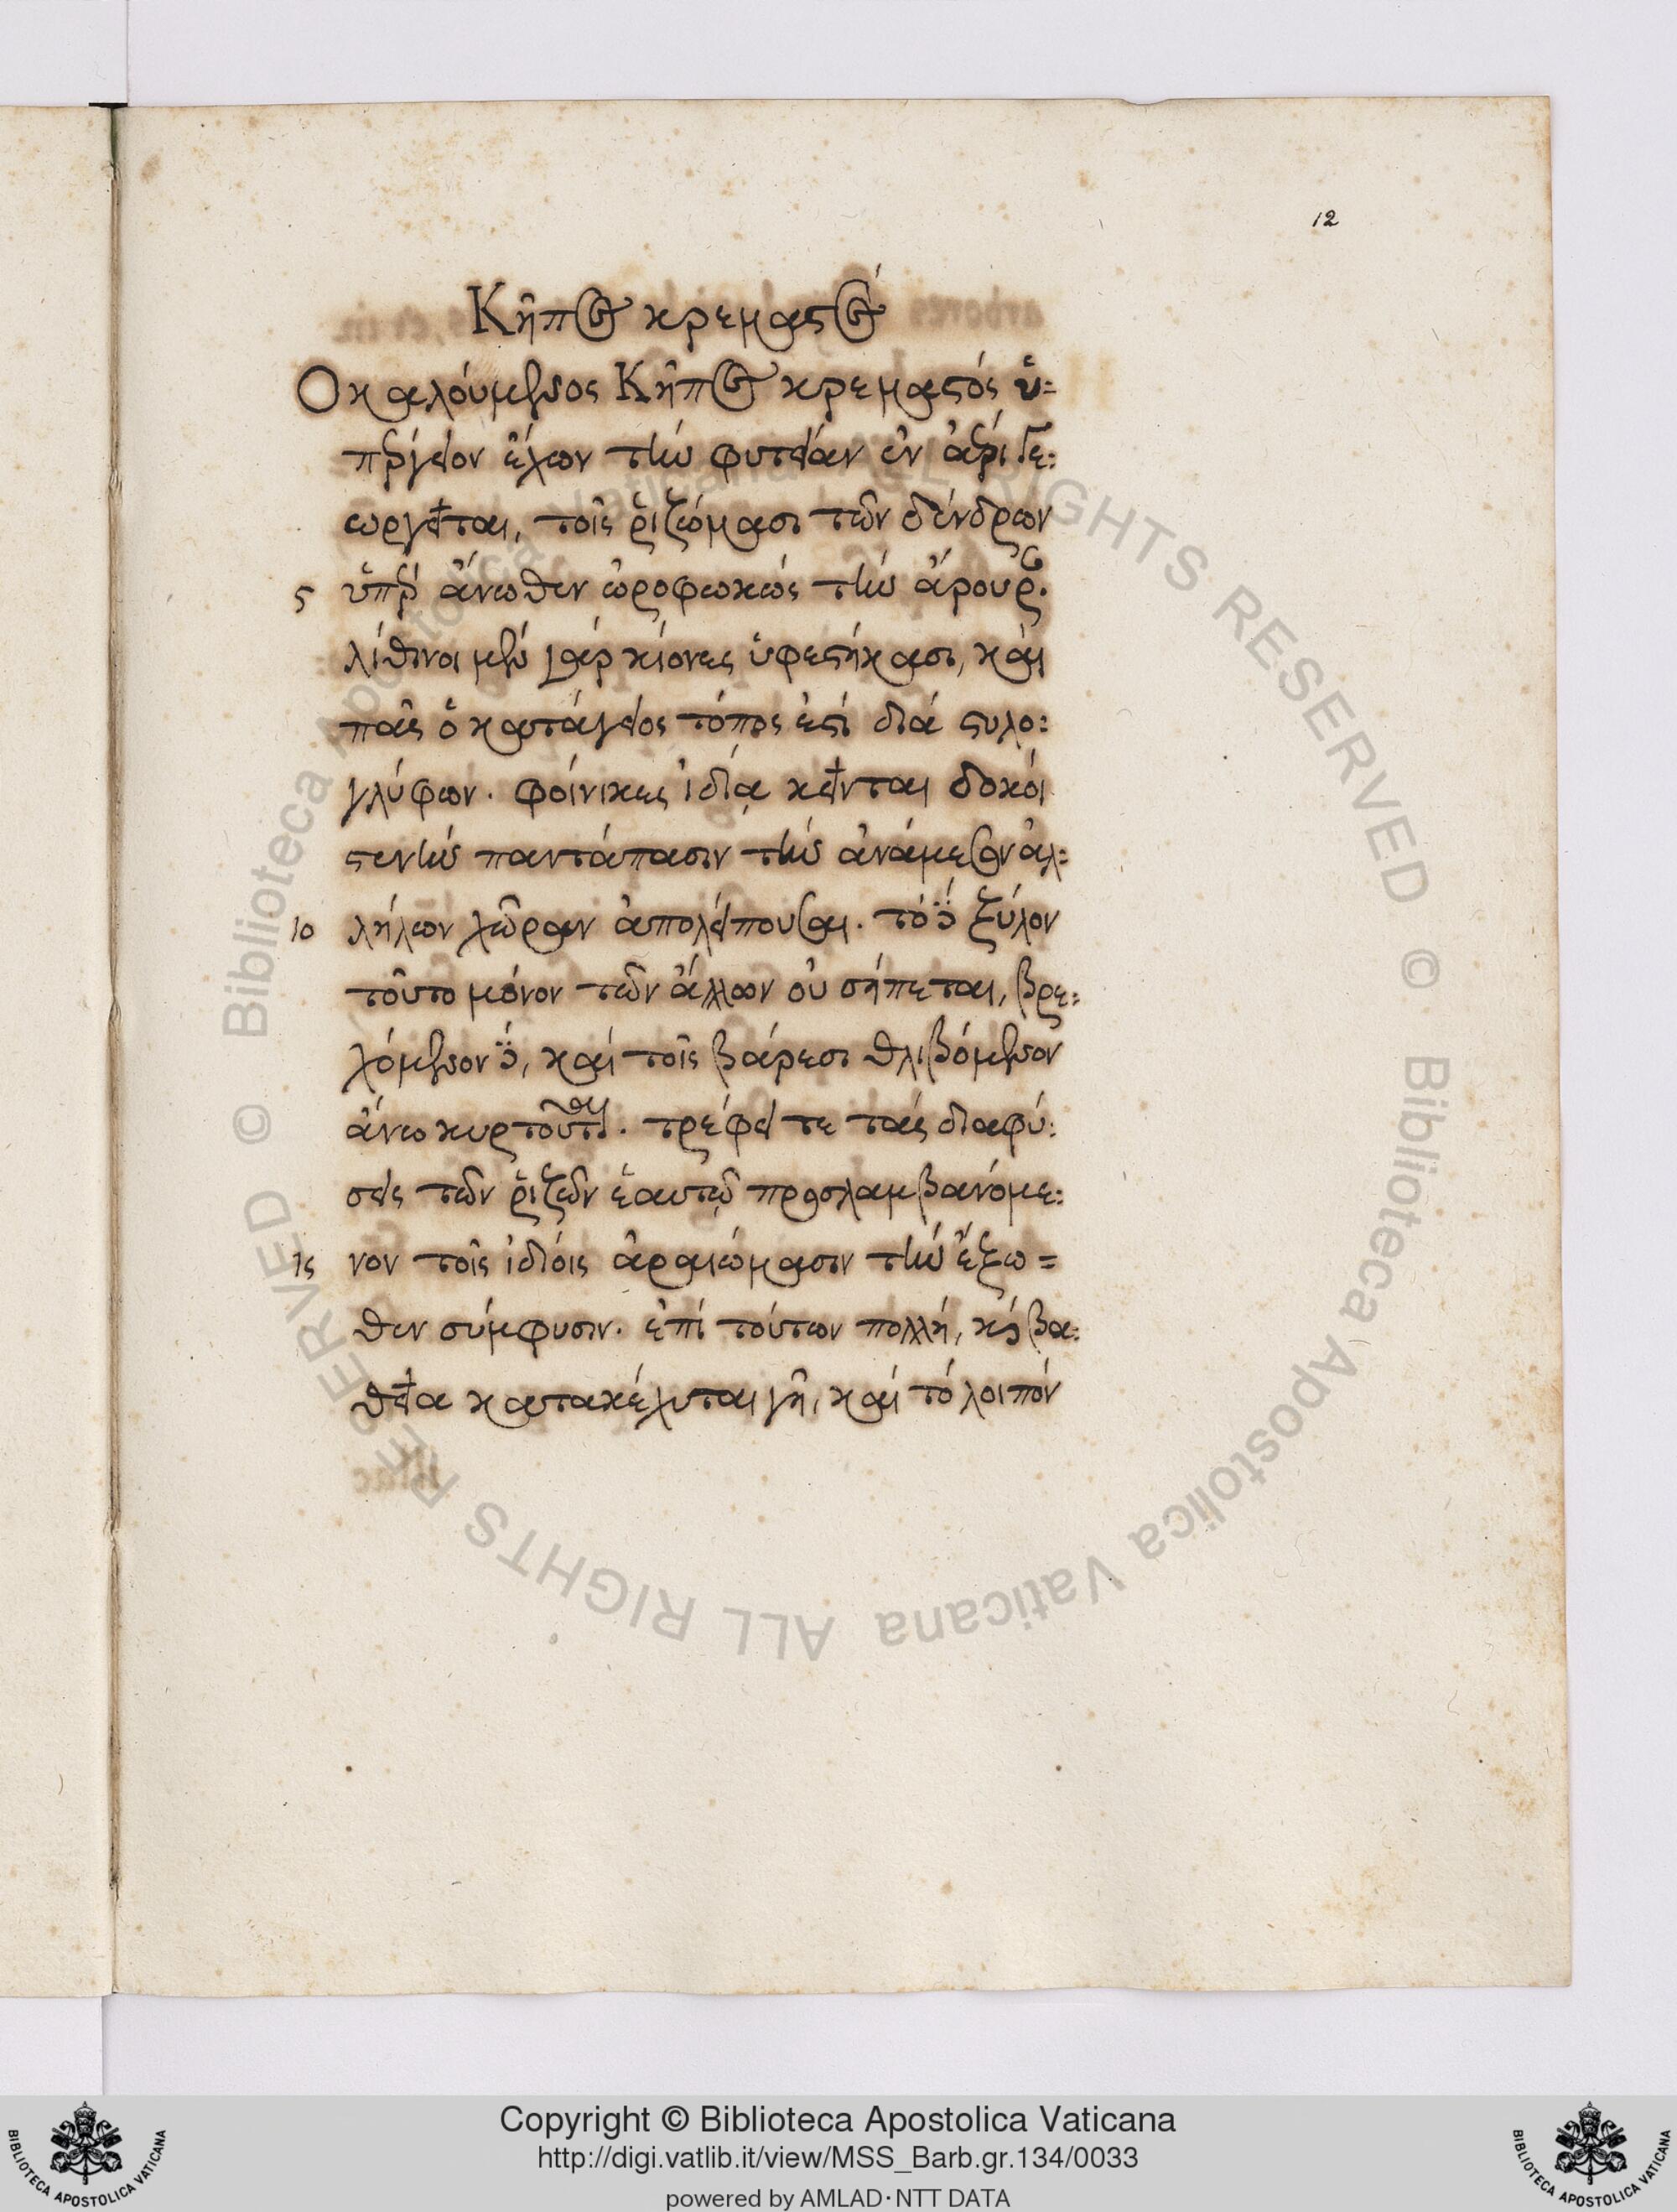 12
Κῆπος κρεμαστός
Ὁ καλόυμενος Κῆπος κρεμαστός ὑ:
πέργειον ἔχων τὴν φυτείαν ἐν ἀέρι γε:
ωργεῖται, τοῖς ῥιζώμασι τῶν δένδρων
5 ὑπὲρ ἄνωθεν ὠροφωκώς τὴν ἄρουραν.
λίθινοι μὲν γάρ κίονες ὑφεστήκασι, καί
πᾶς ὁ κατάγειος τόπος ἐστί διά στυλο:
γλύφων. φοίνικες ἰδίᾳ κεῖνται δοκόι
στενὴν παντάπασιν τὴν ἀνάμεσον ἀλ:
10 λήλων χῶραν ἀπολείπουσαι. τό δέ ξύλον
τοῦτο μόνον τῶν ἄλλων οὐ σήπεται, βρε:
χόμενον δέ, καί τοῖς βάρεσι θλιβόμενον
ἄνω κυρτοῦται. τρέφει τε τάς διαφύ:
σεις τῶν ῥιζῶν ἑαυτῷ προσλαμβανόμε:
15 νον τοῖς ἰδίοις ἀραιώμασιν τὴν ἔξω=
θεν σύμφυσιν. ἐπί τούτων πολλή, καί βα:
θεῖα κατακέχυται γῆ, καί τό λοιπόν
Copyright © Biblioteca Apostolica Vaticana
http://digi.vatlib.it/view/MSS_Barb.gr.134/0033
powered by AMLAD·NTT DATA
BIBLIOTECA APOSTOLICA VATICANA
BIBLIOTECA APOSTOLICA VATICANA
© Biblioteca Apostolica Vaticana ALL RIGHTS RESERVED
© Biblioteca Apostolica Vaticana ALL RIGHTS RESERVED